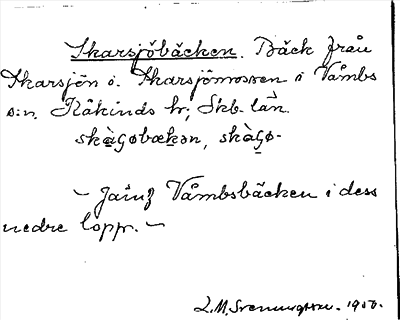 Skarsjöbäcken. Bäck från
Skarsjön o. Skarsjömossen i Våmbs
s:n. Kåkinds hr; Skb. län.
skàgøbækən, skàgø-
~ Jämf Våmbsbäcken i dess
nedre lopp. ~
L.M. Svenungsson. 1950.